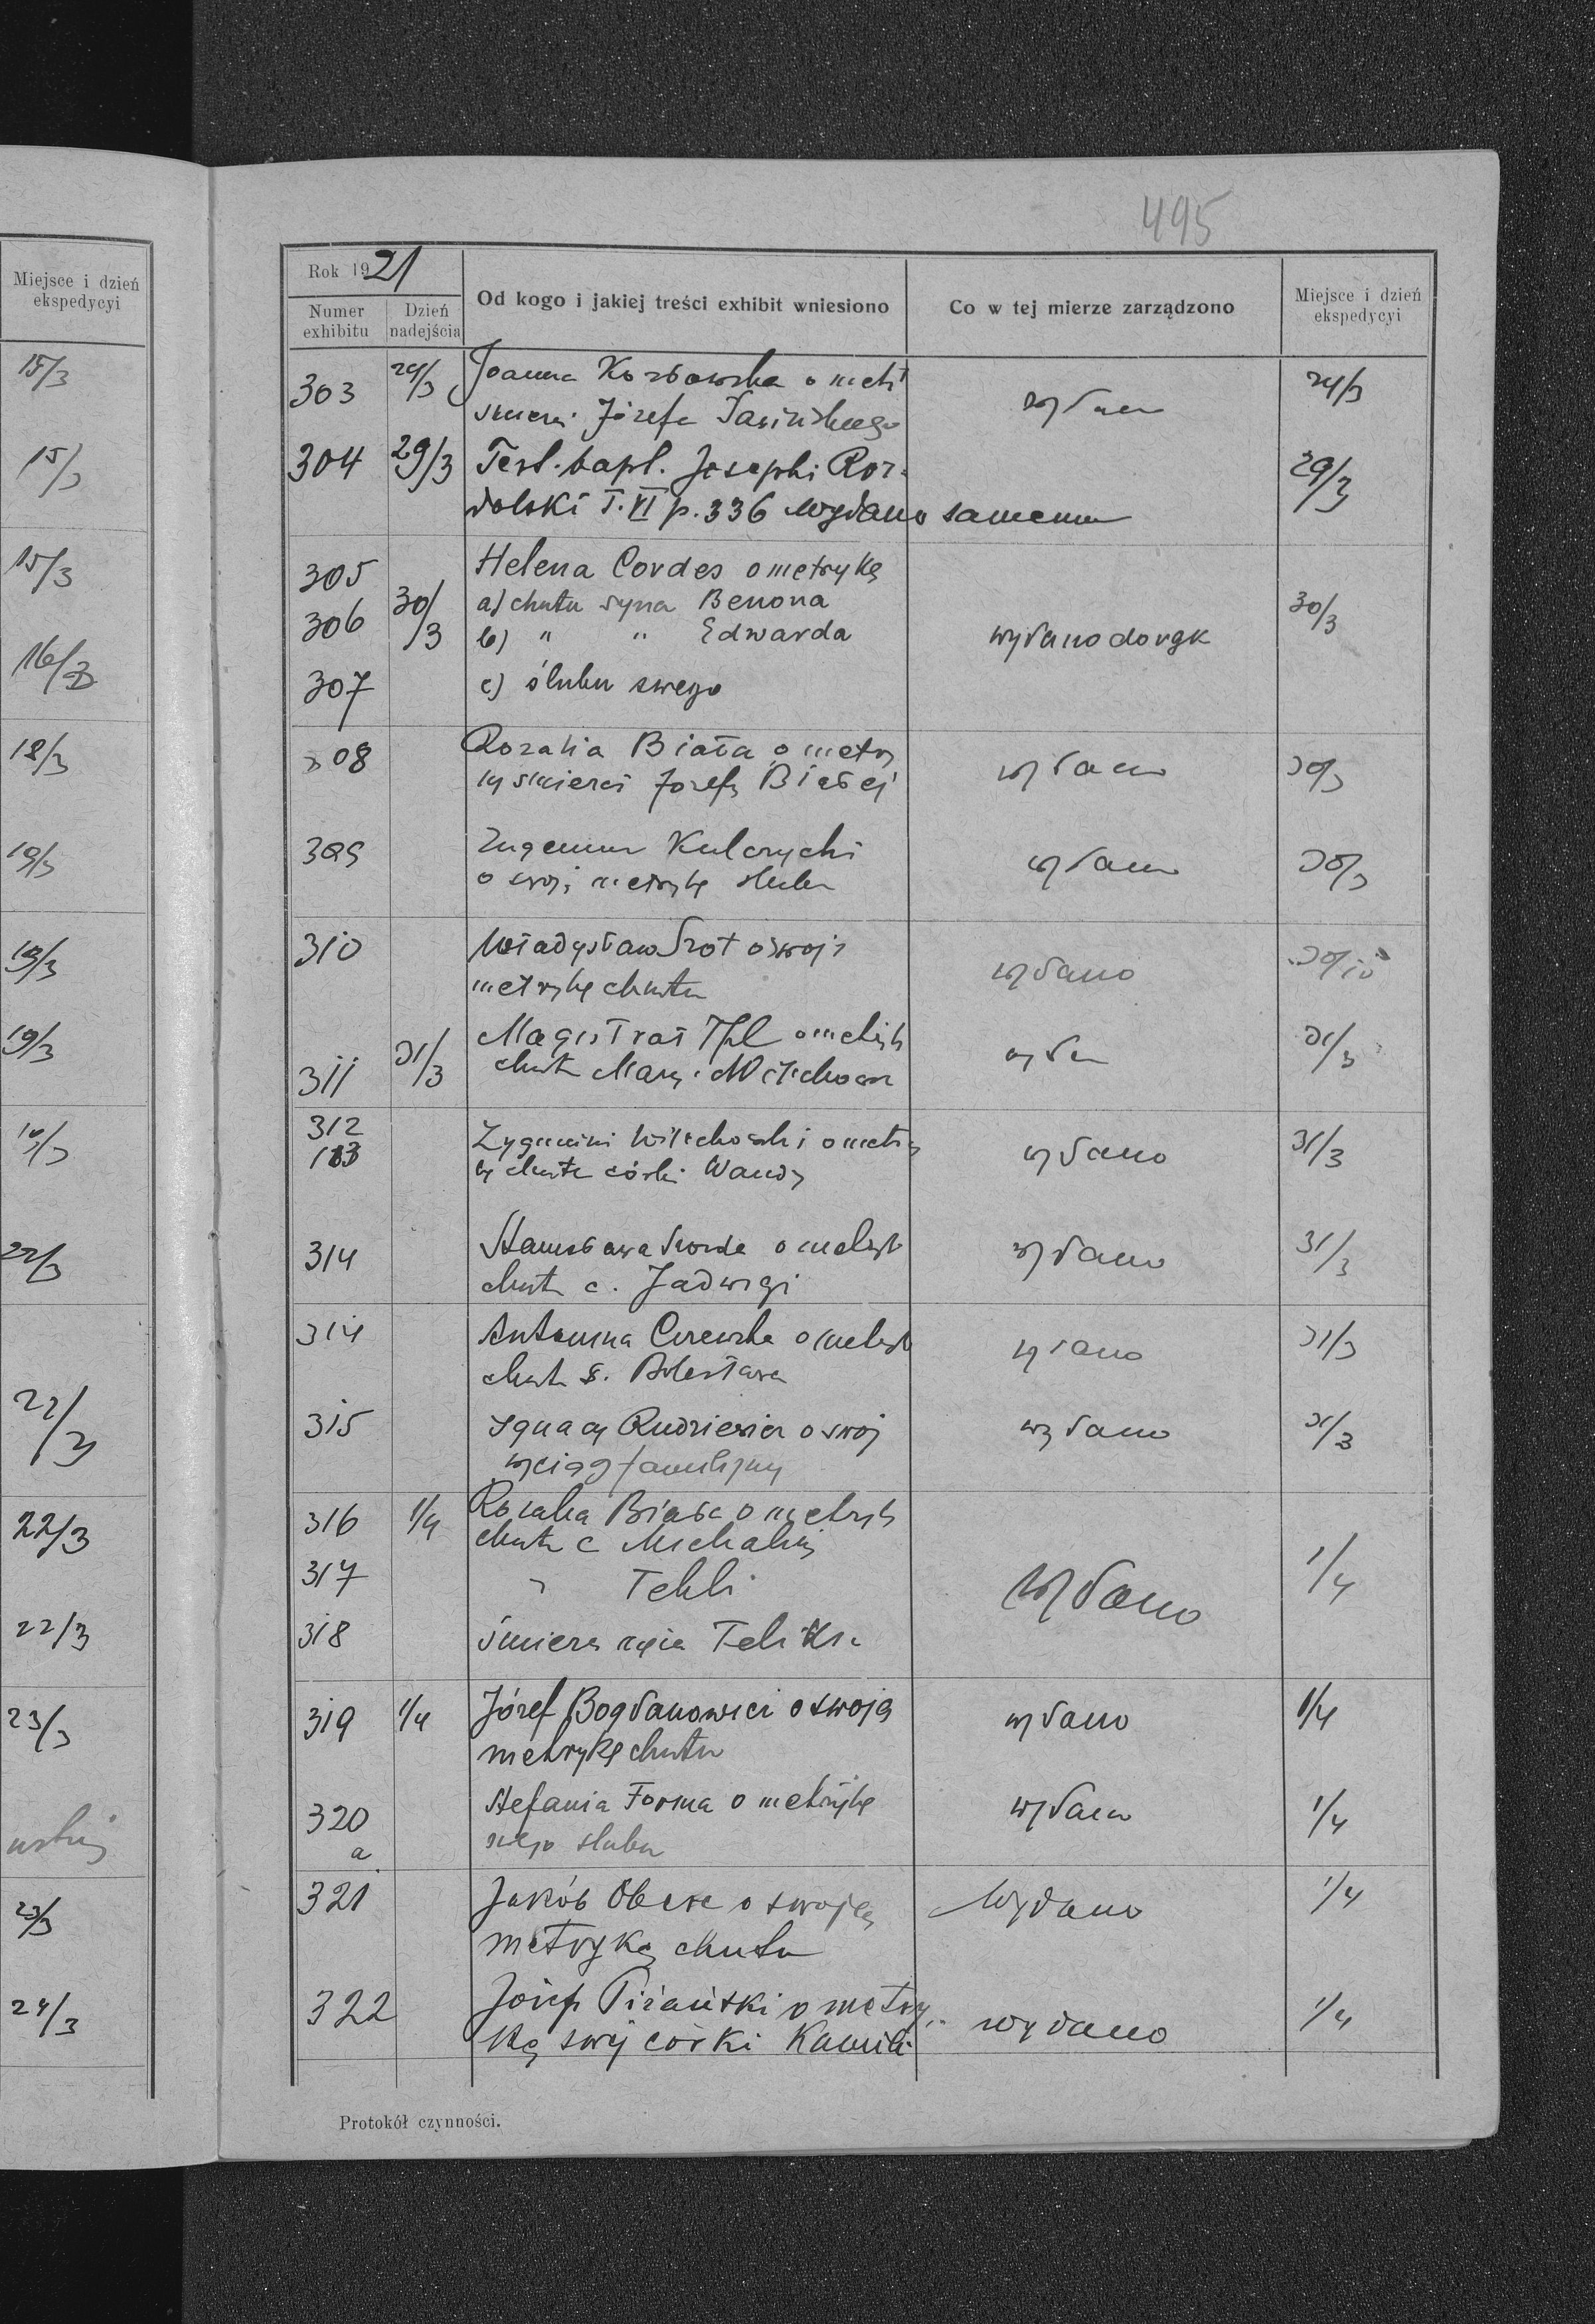 495
Miejsce i dzień
ekspedycyi
15/3
15/3
15/3
16/3
18/3
19/3
19/3
19/3
22/3
22/3
22/3
22/3
23/3
23/3
24/3
Rok 1921
Numer
exhibitu
Dzień
nadejścia
Od kogo i jakiej treści exhibit wniesiono
Co w tej mierze zarządzono
Miejsce i dzień
ekspedycyi
303 24/3 Joanna Kozłowska o metr
śmierci Józefa Jasińskiego wydano 24/3
304 29/3 Test. bapt. Josephi Roz-
dolski T. VI p. 336 wydano samemu 29/3
305 Helena Cordes o metrykę
306 30/3 a) chrztu syna Benona 30/3
b) " " Edwarda wydano do rąk
307 c) ślubu swego
308 Rozalia Biała o metry
kę śmierci Józefy Białej wydano 30/3
309 Eugeniusz Kulczycki
o swoją metrykę ślubu wydano 30/3
310 Władysław Szot o swoją
metrykę chrztu wydano
311 31/3 Magistrat o metryk
chrztu 31/3
312
113 Zygmunt o metry
kę chrztu córki Wandy wydano 31/3
314 Stanisława o metryk
chrztu c. Jadwigi wydano 31/3
314 Antonina o metryk
chrztu s. Bolesława wydano 31/3
315 Ignacy Rudziewicz o swój
wyciąg familijny wydano 31/3
316 1/4 Rozalia Biała o metryk
chrztu c Michaliny
317 " Tekli wydano 1/4
318 śmierci męża
319 1/4 Józef Bogdanowicz o swoją
metrykę chrztu wydano 1/4
320 Stefania Forma o metrykę
a swego ślubu wydano 1/4
321 Jakób o swoją
metrykę chrztu Wydano 1/4
322 Józef Pizański o metry-
kę swej córki Kamili wydano 1/4
Protokół czynności.